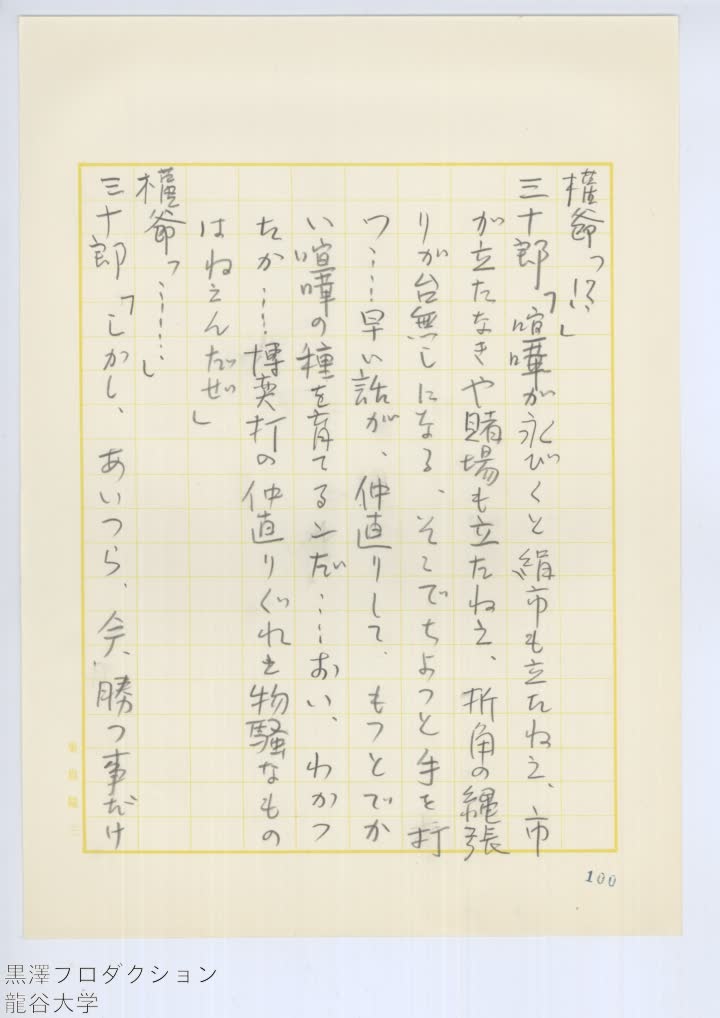 権爺「⁉」
三十郎「喧嘩が永びくと絹市も立たねえ、市
が立たなきや賭場も立たねえ、折角の縄張
りが台無しになる、そこでちよつと手を打
つ……早い話が、仲直りして、もつとでか
い喧嘩の種を育てるンだ……おい、わかつ
たか……博奕打の仲直りぐれえ物騒なもの
はねえんだぜ」
権爺「……」
三十郎「しかし、あいつら、今、勝つ事だけ
100
黒澤プロダクション
龍谷大学